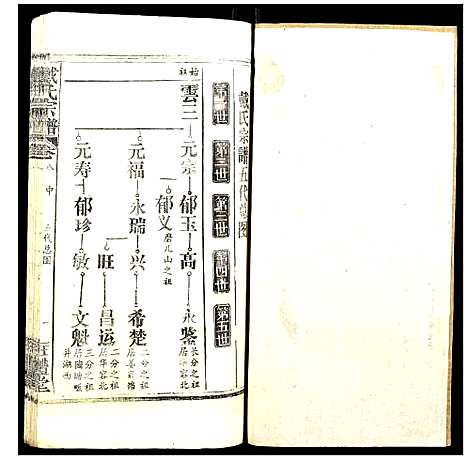 戴氏宗譜五代總圖
第一世 第二世 第三世 第四世 第五世
始祖 雲三 元宗 郁玉 高 永鑒 長分之祖居華容北
郁义 磨儿山之祖
元福 永瑞 兴 希楚 二分之祖
旺 昌运 二分之祖居华容北
元寿 郁珍 敏 文魁 三分之祖
戴氏宗譜 卷 八 中 五代总图 一